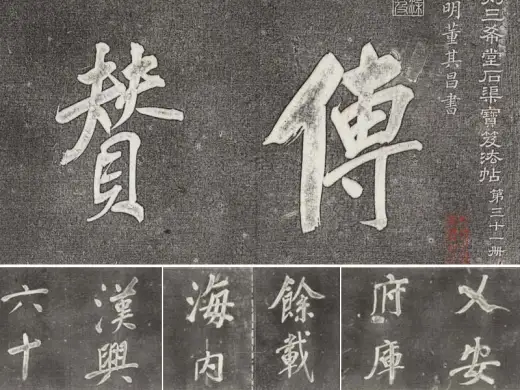 刻三希堂石渠寶笈法帖 第三十一冊
明董其昌書
傳
贊
漢興
六十
餘載
海内
乂安
府庫